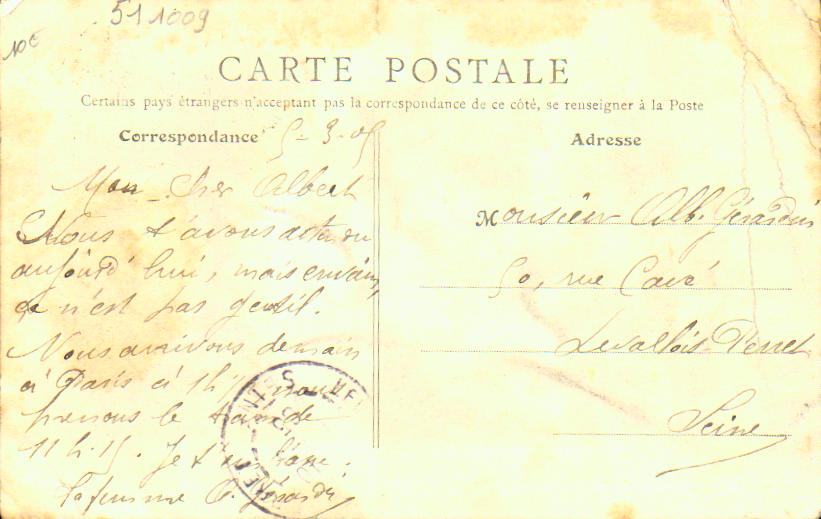 511009
10€
CARTE POSTALE
Certains pays étrangers n'acceptant pas la correspondance de ce côté, se renseigner à la Poste
Correspondance 5-3-05
Adresse
Mon Cher Albert
Nous t'avons attendu
aujourd'hui, mais en vain,
ce n'est pas gentil.
Nous arrivons demain
à Paris à 1h nous
prenons le train de
11h.15. Je t'
Ta femme
Monsieur Alb. Gérardin
50, rue Cavé
Levallois-Perret
Seine